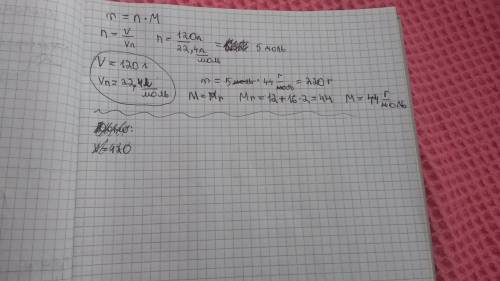 m = n · M
n = V/Vn n = 120л/22,4л/моль = 5 моль
V = 120 л
Vn = 22,4 л/моль m = 5 моль · 44 г/моль = 220 г
M = Mr Mr = 12 + 16 · 2 = 44 M = 44 г/моль
V = 920